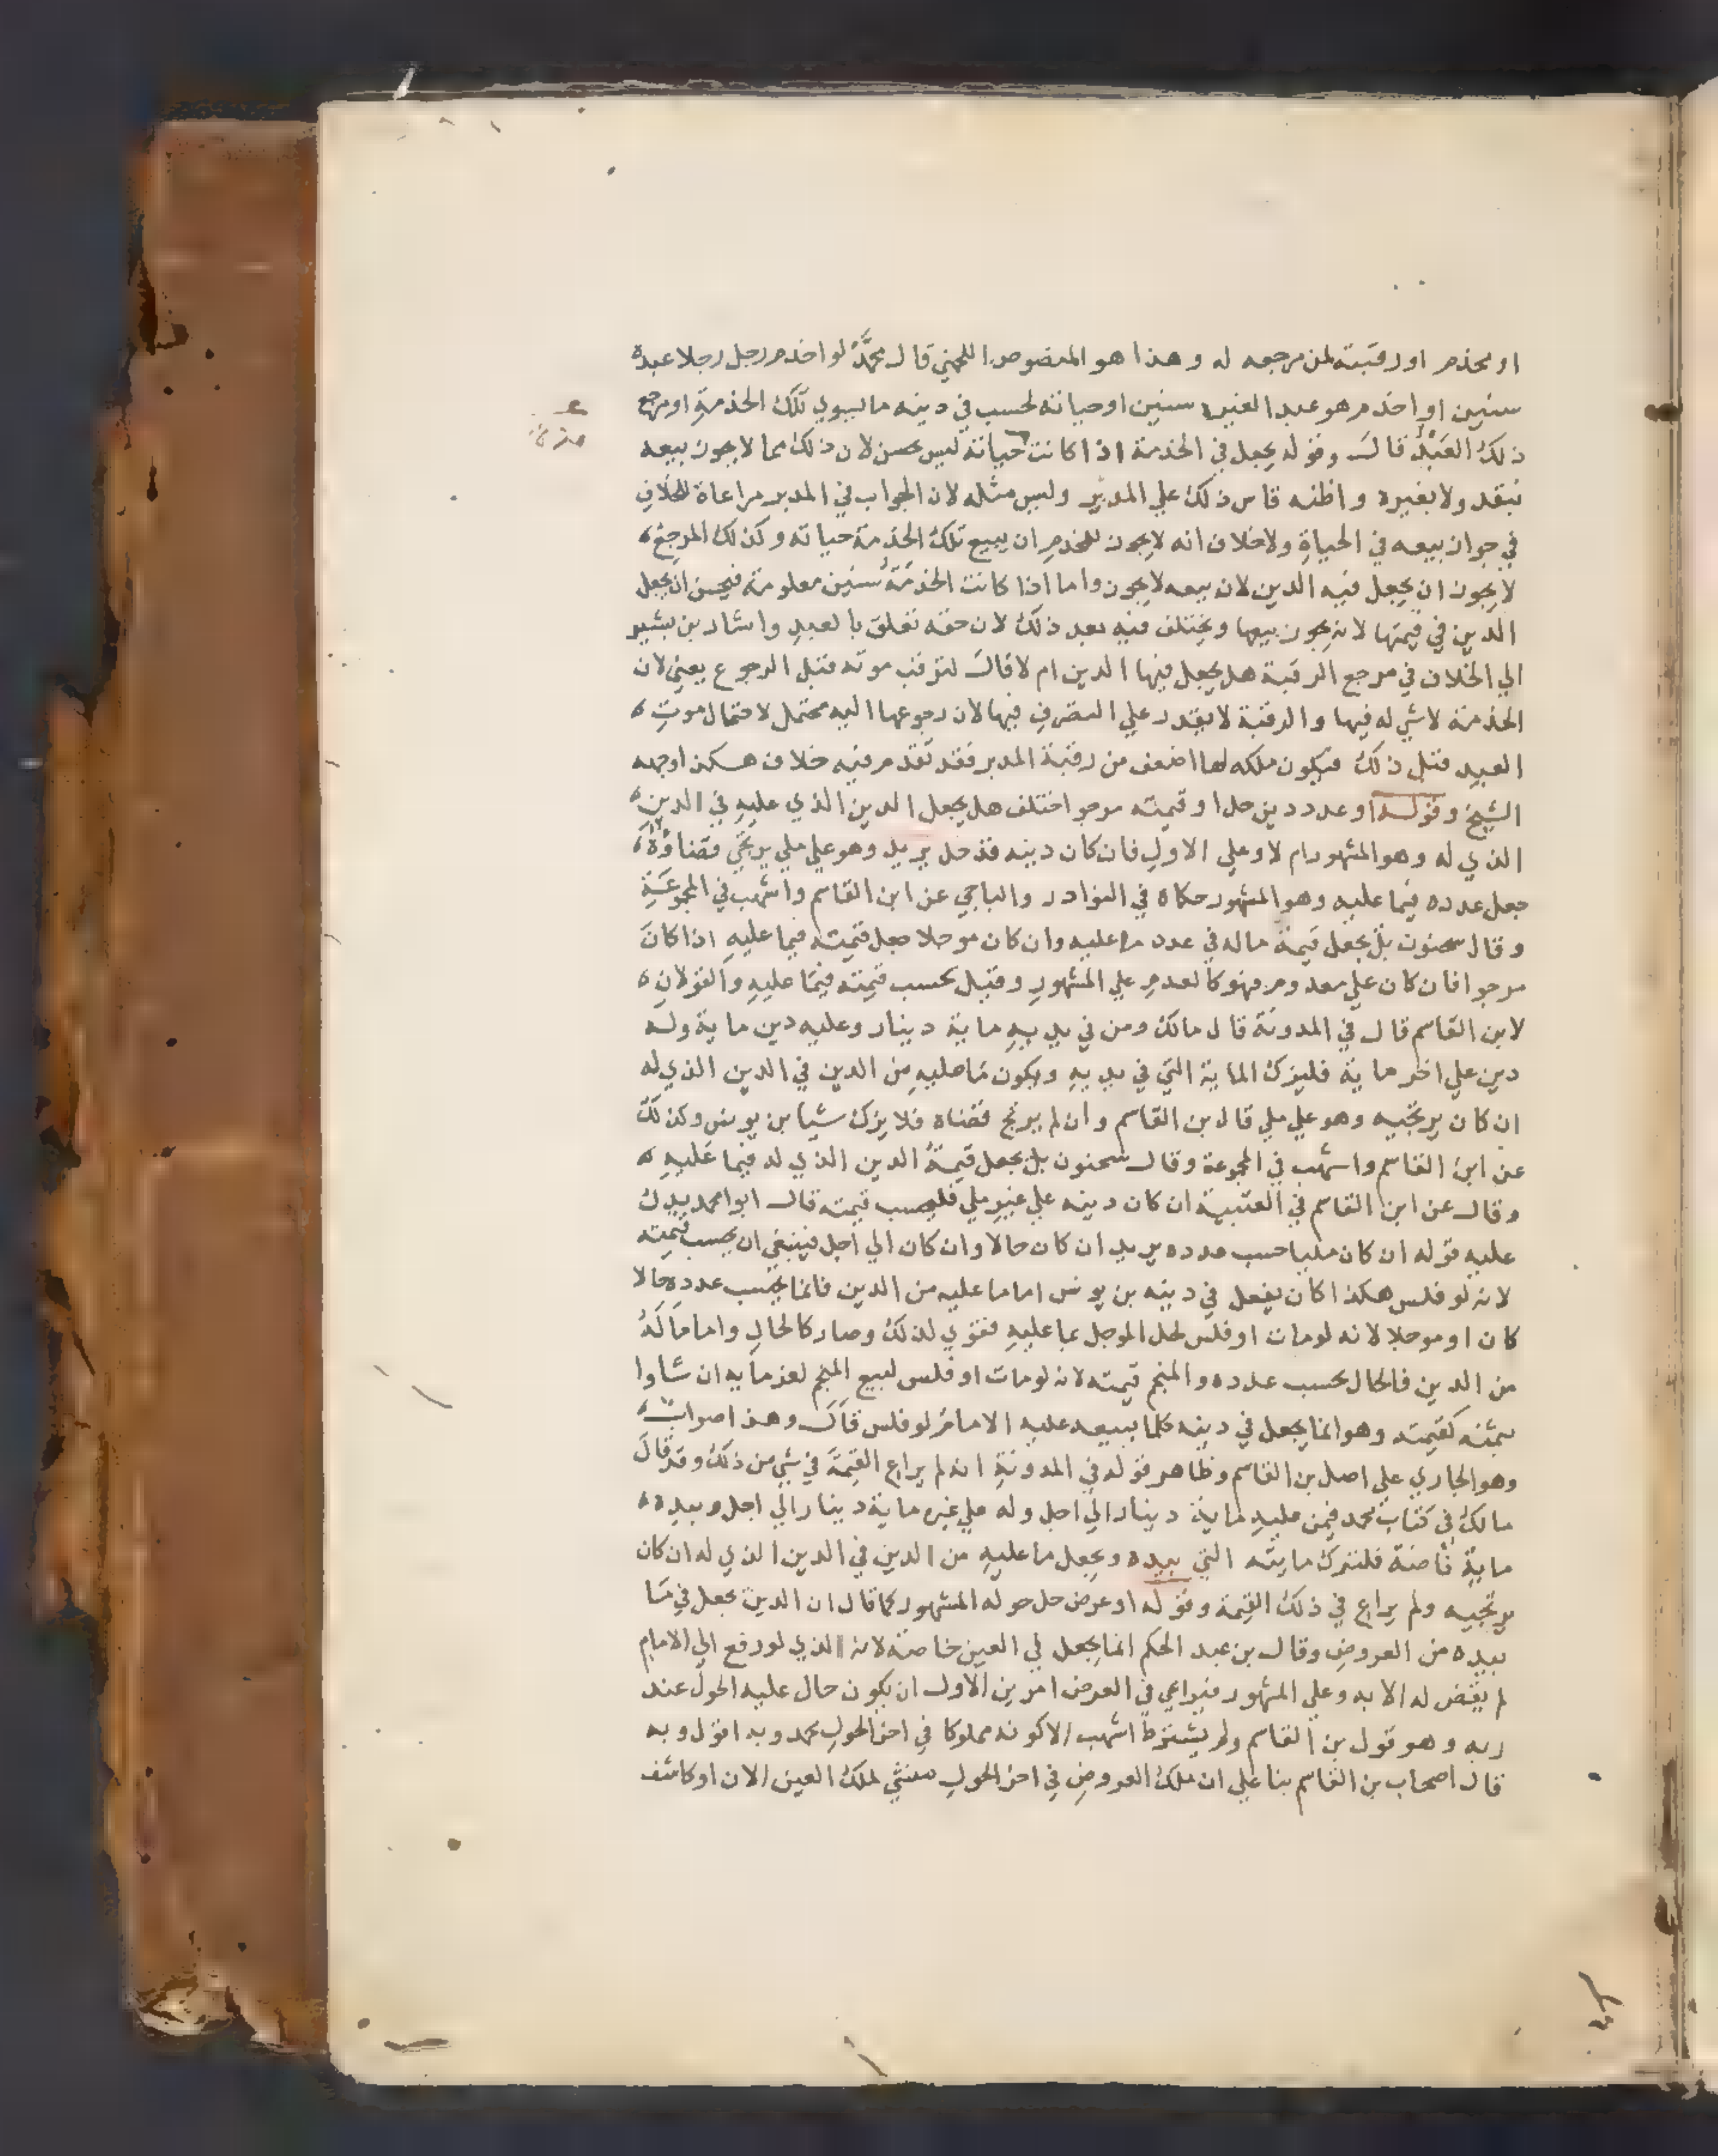 او مخدم او رقبته لمن مرجعه له وهذا هو المنصوص اللخمي قال محمد لو اخدم رجل رجلا عبده
سنين او اخدم هو عبد الغير سنين او حياته لحسب في دينه ما يسوي تلك الخدمة او مرجع
ذلك العبد قال وقوله يجعل في الخدمة اذا كانت حياته ليس بحسن لان ذلك مما لا يجوز بيعه
بنقد ولا بغيره واظنه قاس ذلك علي المدبر وليس مثله لان الجواب في المدبر مراعاة للخلاف
في جواز بيعه في الحياة ولا خلاف انه لا يجوز للمخدم ان يبيع تلك الخدمة حياته وكذلك المرجع
لا يجوز ان يجعل فيه الدين لان بيعه لا يجوز واما اذا كانت الخدمة سنين معلومة فيحسن ان يجعل
الدين في قيمتها لانه يجوز بيعها ويختلف فيه بعد ذلك لان حقه تعلق بالعبد واشار بن بشير
الي الخلاف في مرجع الرقبة هل يجعل فيها الدين ام لا قال لترقب موته قبل الرجوع يعني لان
الخدمة لا شي له فيها والرقبة لا يقدر علي التصرف فيها لان رجوعها اليه محتمل لاحتمال موت
العبد قبل ذلك فيكون ملكه لها اضعف من رقبة المدبر فقد تقدم فيه خلاف هكذا وجهه
الشيخ وقوله او عدد دين حل او قيمته مرجو اختلف هل يجعل الدين الذي عليه في الدين
الذي له وهو المشهور ام لا وعلي الاول فان كان دينه قد حل يريد وهو علي ملي يرتجي قضاؤه
جعل عدده فيما عليه وهو المشهور حكاه في النوادر والباجي عن ابن القاسم واشهب في المجموعة
وقال سحنون بل يجعل قيمة ماله في عدد ما عليه وان كان موجلا جعل قيمته فيما عليه اذا كان
مرجوا فان كان علي معدوم فهو كالعدم علي المشهور وقيل يحسب قيمته فيما عليه والقولان
لابن القاسم قال في المدونة قال مالك ومن في يديه ماية دينار وعليه دين ماية وله
دين علي اخر ماية فليزك الماية التي في يديه ويكون ما عليه من الدين في الدين الذي له
ان كان يرتجيه وهو علي ملي قال بن القاسم وان لم يرتج قضاه فلا يزك شيا بن يونس وكذلك
عن ابن القاسم واشهب في المجموعة وقال سحنون بل يجعل قيمة الدين الذي له فيما عليه
وقال عن ابن القاسم في العتبية ان كان دينه علي غير ملي فليحسب قيمته قال ابوا محمد يدل
عليه قوله ان كان مليا حسب عدده يريد ان كان حالا وان كان الي اجل فينبغي ان يحسب قيمته
لانه لو فلس هكذا كان يفعل في دينه بن يونس اما ما عليه من الدين فانما يحسب عدده حالا
كان او موجلا لانه لو مات او فلس لحل الموجل بما عليه فقوي لذلك وصار كالحال واما ما له
من الدين فالحال يحسب عدده والمنجم قيمته لانه لو مات او فلس لبيع المنجم لغرمايه ان شاوا
بثمنه كقيمته وهو انما يجعل في دينه كلما يبيعه عليه الامام لو فلس قال وهذا صواب
وهو الجاري علي اصل بن القاسم وظاهر قوله في المدونة انه لم يراع القيمة في شي من ذلك وقد قال
مالك في كتاب محمد فيمن عليه ماية دينار الي اجل وله علي غيره ماية دينار الي اجل وبيده
ماية ناضة فلتزك مايته التي بيده ويجعل ما عليه من الدين في الدين الذي له ان كان
يرتجيه ولم يراع في ذلك القيمة وقوله او عرض حل حوله المشهور كما قال ان الدين يجعل في ما
بيده من العروض وقال بن عبد الحكم انما يجعل في العين خاصة لانه الذي لو رفع الي الامام
لم يقض له الا به وعلي المشهور فيراعي في العرض امرين الاول ان يكون حال عليه الحول عند
ربه وهو قول بن القاسم ولم يشترط اشهب الا كونه مملوكا في اخر الحول محمد وبه اقول وبه
قال اصحاب بن القاسم بنا علي ان ملك العروض في اخر الحول منشي لملك العين الان او كاشف